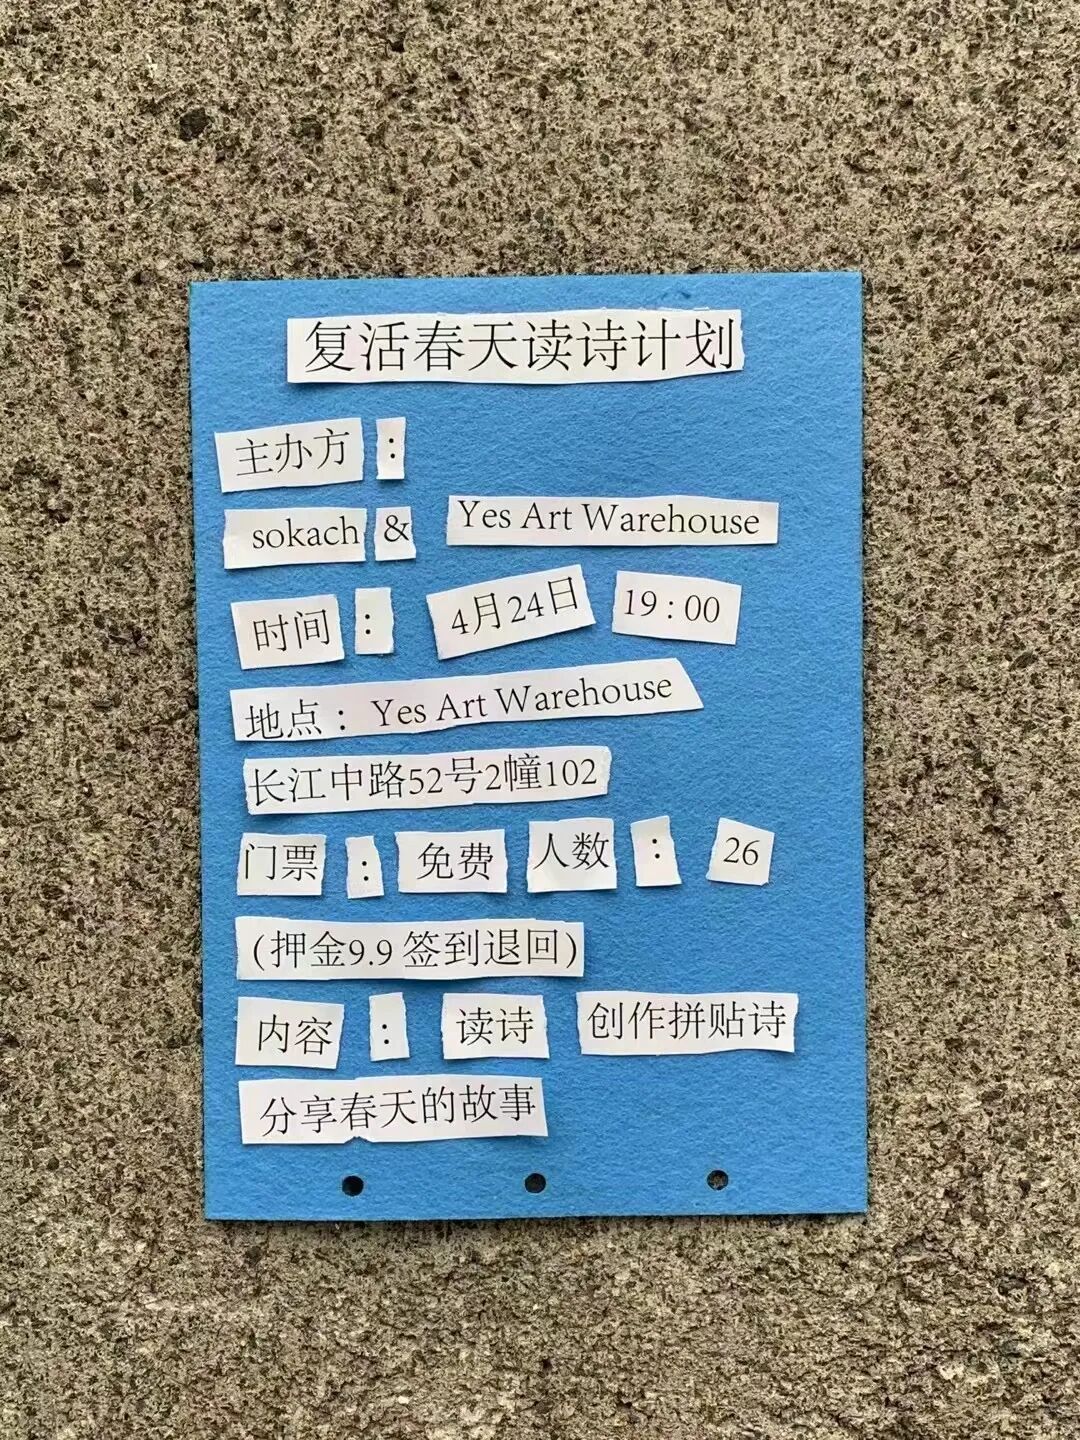 复活春天读诗计划
主办方：
sokach & Yes Art Warehouse
时间： 4月24日 19：00
地点：Yes Art Warehouse
长江中路52号2幢102
门票：免费 人数：26
(押金9.9 签到退回)
内容：读诗 创作拼贴诗
分享春天的故事